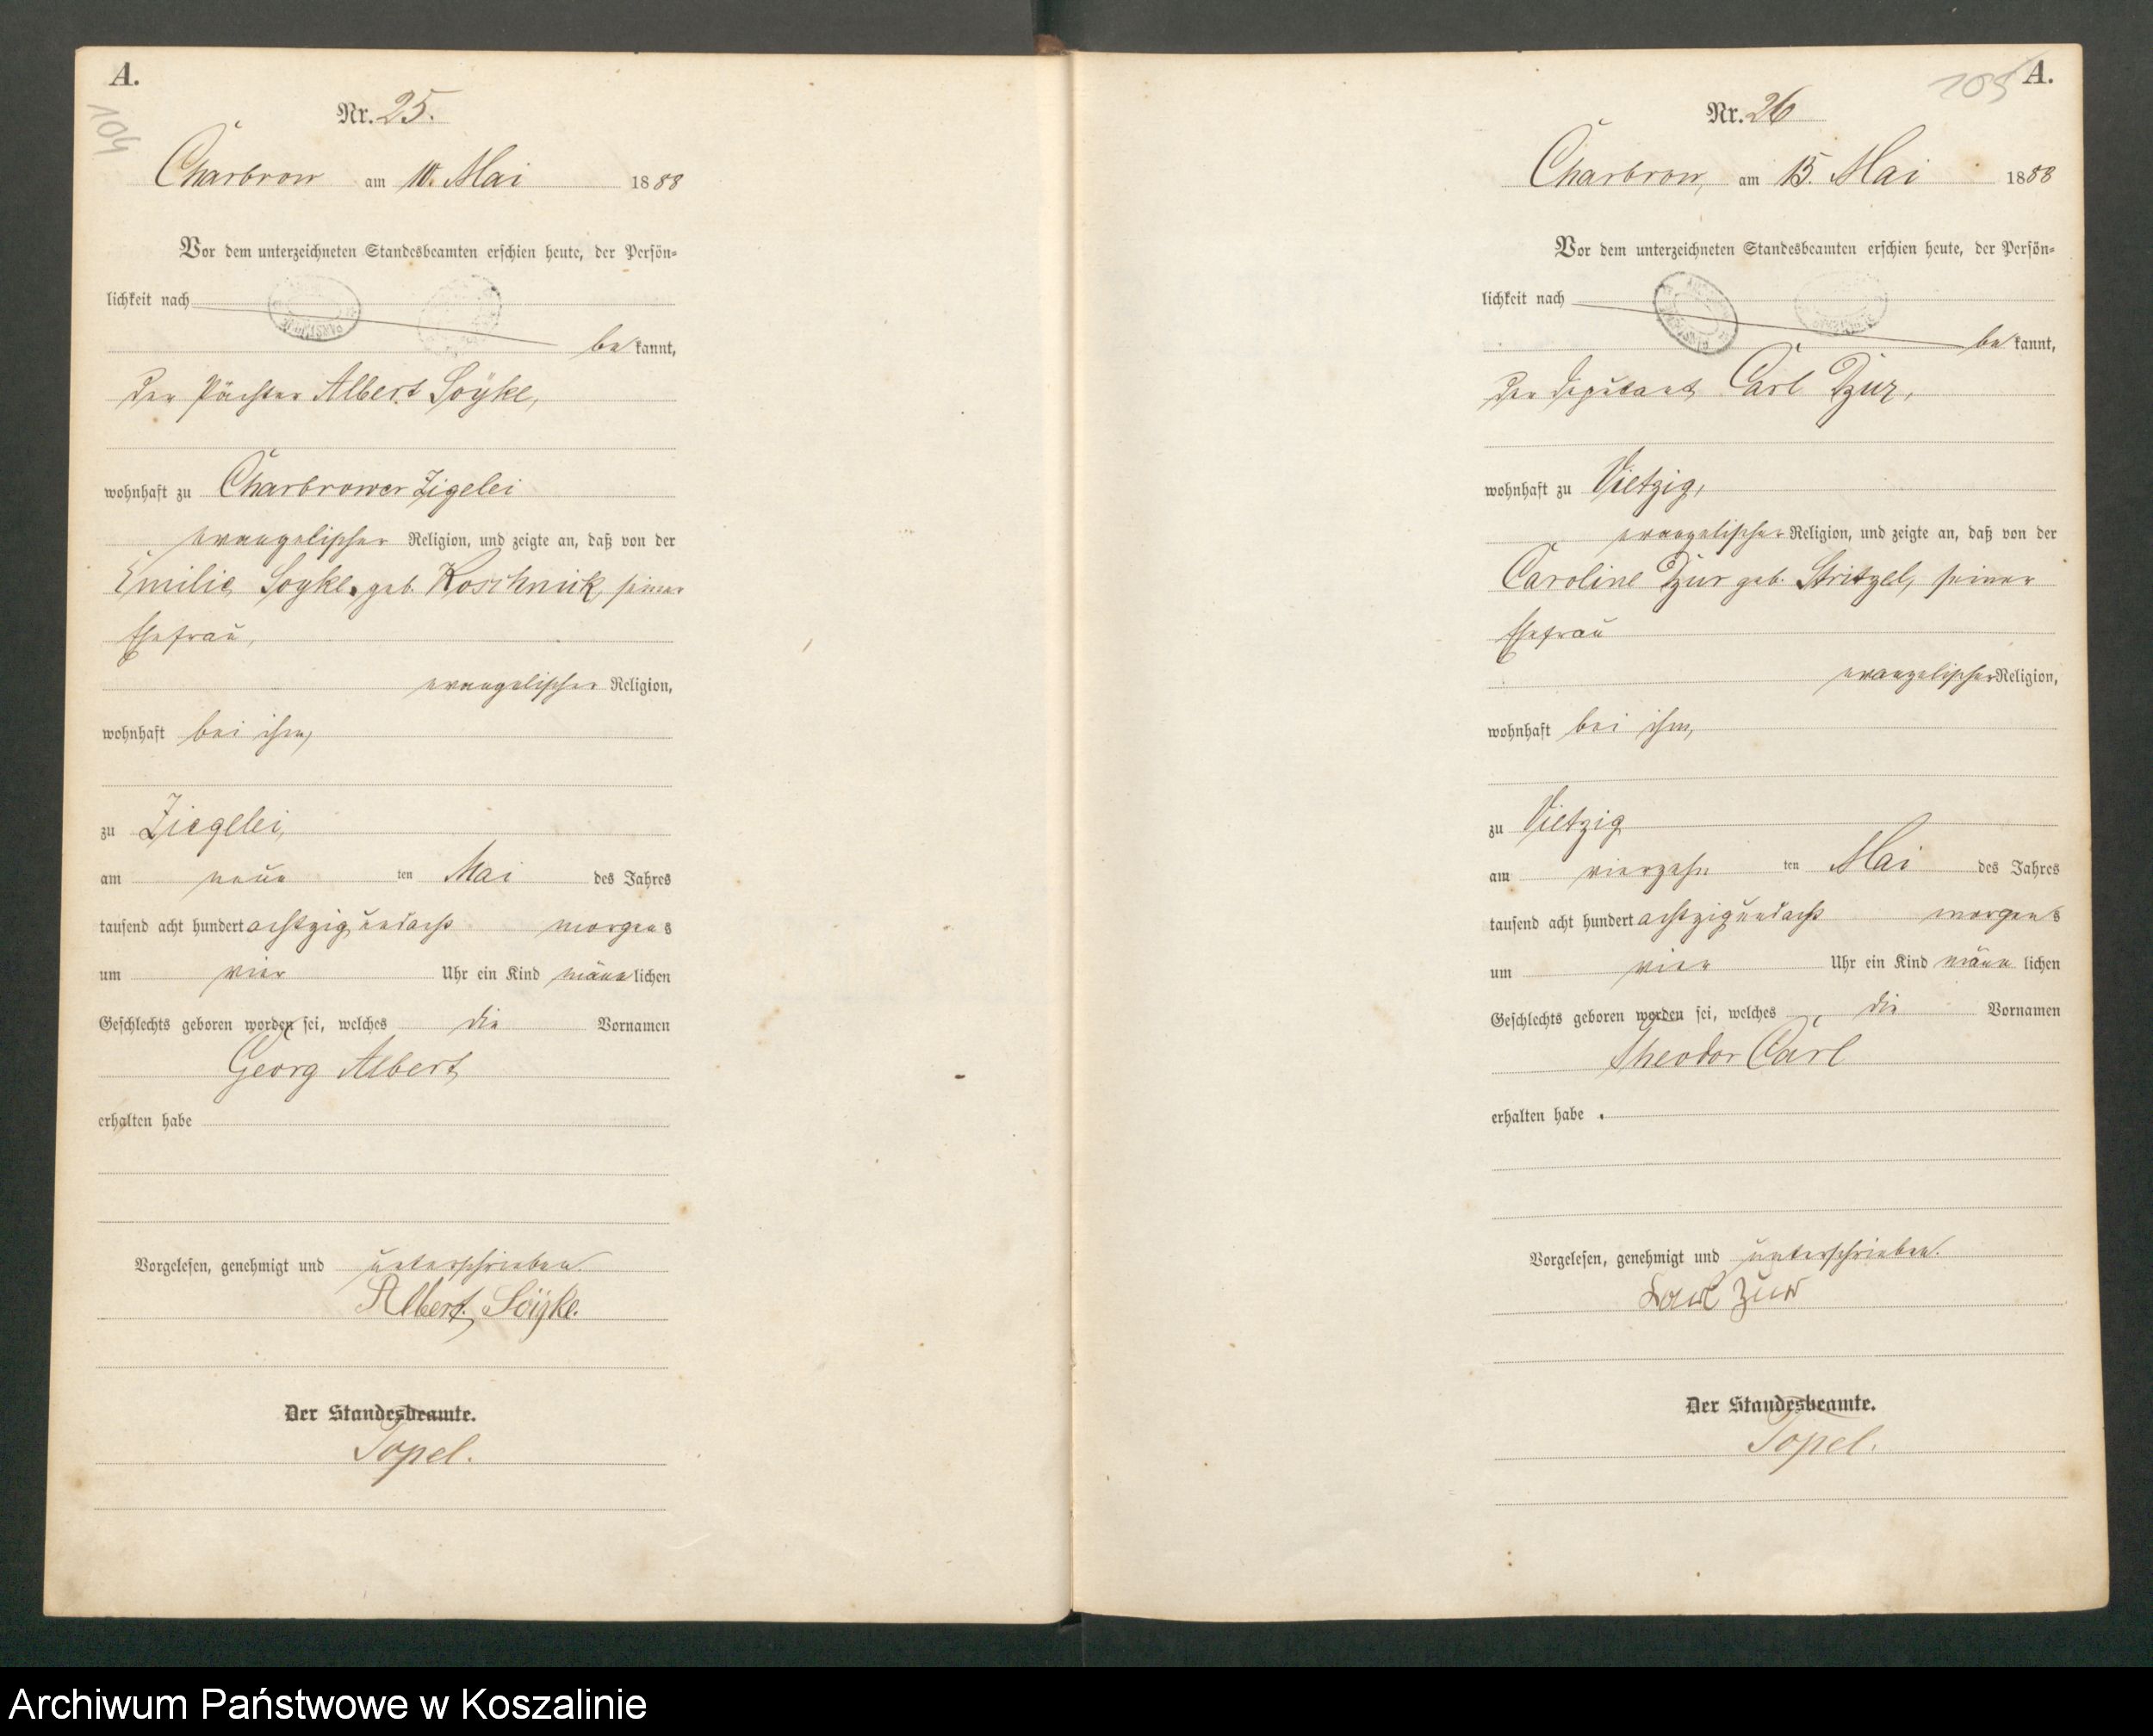 A.
104
Nr. 25.
Charbrow am 10. Mai 1888
Vor dem unterzeichneten Standesbeamten erschien heute, der Persön-
lichkeit nach
be kannt,
der Pächter Albert Soyke,
wohnhaft zu Charbrower Zigelei
evangelischer Religion, und zeigte an, daß von der
Emilie Soyke, geb. Koschnick, seiner
Ehefrau,
evangelischer Religion,
wohnhaft bei ihm,
zu Ziegelei,
am neun ten Mai des Jahres
tausend acht hundert achtzig und acht morgens
um vier Uhr ein Kind männlichen
Geschlechts geboren worden sei, welches die Vornamen
Georg Albert
erhalten habe
Vorgelesen, genehmigt und unterschrieben.
Albert Soyke.
Der Standesbeamte.
Topel.
105
A.
Nr. 26
Charbrow, am 15. Mai 1888
Vor dem unterzeichneten Standesbeamten erschien heute, der Persön-
lichkeit nach
be kannt,
der Deputant Carl Dzur,
wohnhaft zu Vietzig,
evangelischer Religion, und zeigte an, daß von der
Caroline Dzur geb. Stritzel, seiner
Ehefrau
evangelischer Religion,
wohnhaft bei ihm,
zu Vietzig
am vierzehn ten Mai des Jahres
tausend acht hundert achtzig und acht morgens
um vier Uhr ein Kind männ lichen
Geschlechts geboren worden sei, welches die Vornamen
Theodor Carl
erhalten habe.
Vorgelesen, genehmigt und unterschrieben.
Karl Zur
Der Standesbeamte.
Topel.
Archiwum Państwowe w Koszalinie